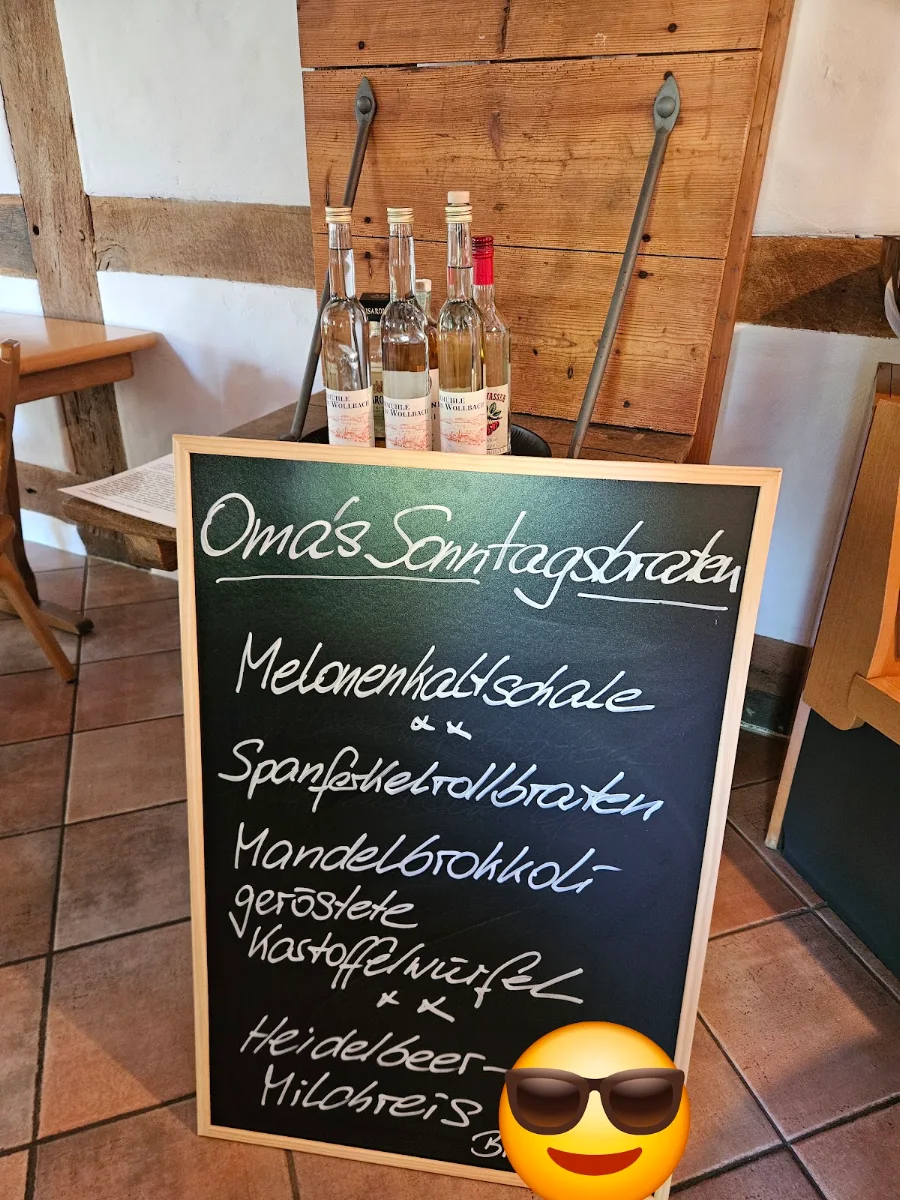 MÜHLE
WOLLBACH
MÜHLE
WOLLBACH
MÜHLE
WOLLBACH
Oma's Sonntagsbraten
Melonenkaltschale
x x
Spanferkelrollbraten
Mandelbrokkoli
geröstete
Kartoffelwürfel
x x
Heidelbeer-
Milchreis